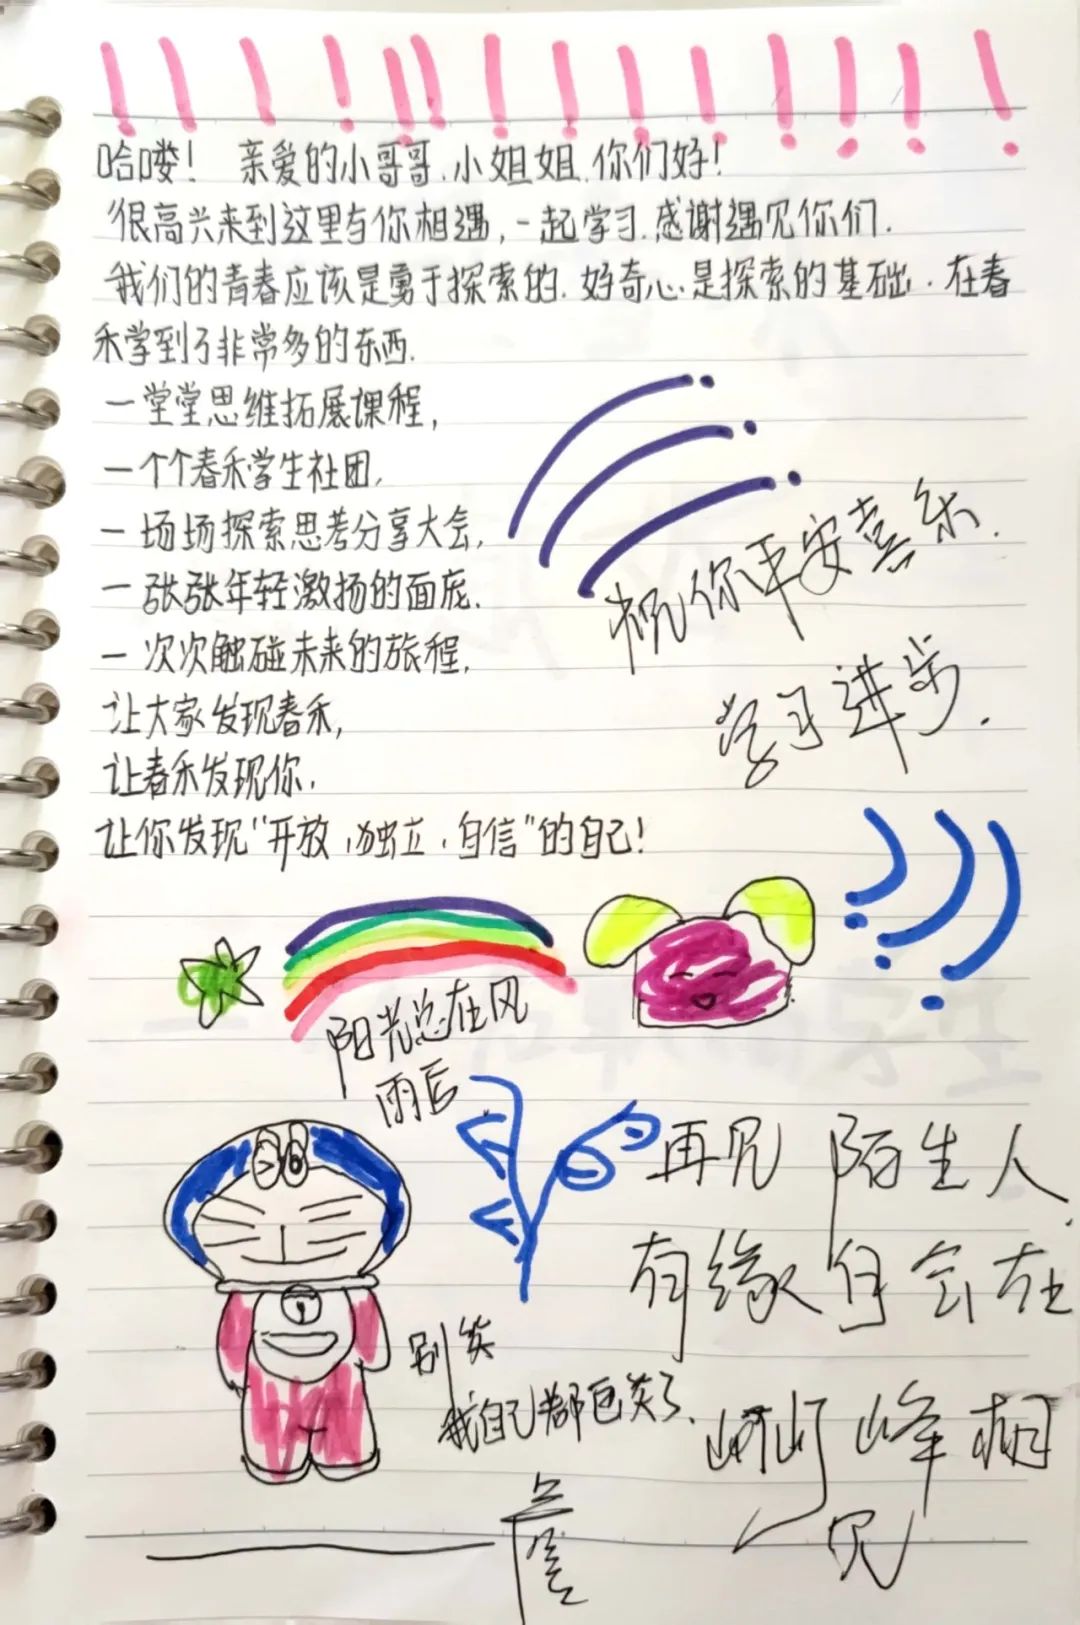 哈喽！ 亲爱的小哥哥、小姐姐、你们好！
很高兴来到这里与你相遇，一起学习、感谢遇见你们.
我们的青春应该是勇于探索的、好奇心是探索的基础、在春
禾学到了非常多的东西.
一堂堂思维拓展课程，
一个个春禾学生社团、
一场场探索思考分享大会，
一张张年轻激扬的面庞、
一次次触碰未来的旅程，
让大家发现春禾，
让春禾发现你，
让你发现“开放、独立、自信”的自己！
祝你平安喜乐.
学习进步.
阳光总在风
雨后
再见 陌生人.
有缘自会在
峰相
见
别笑
我自己都已笑了.